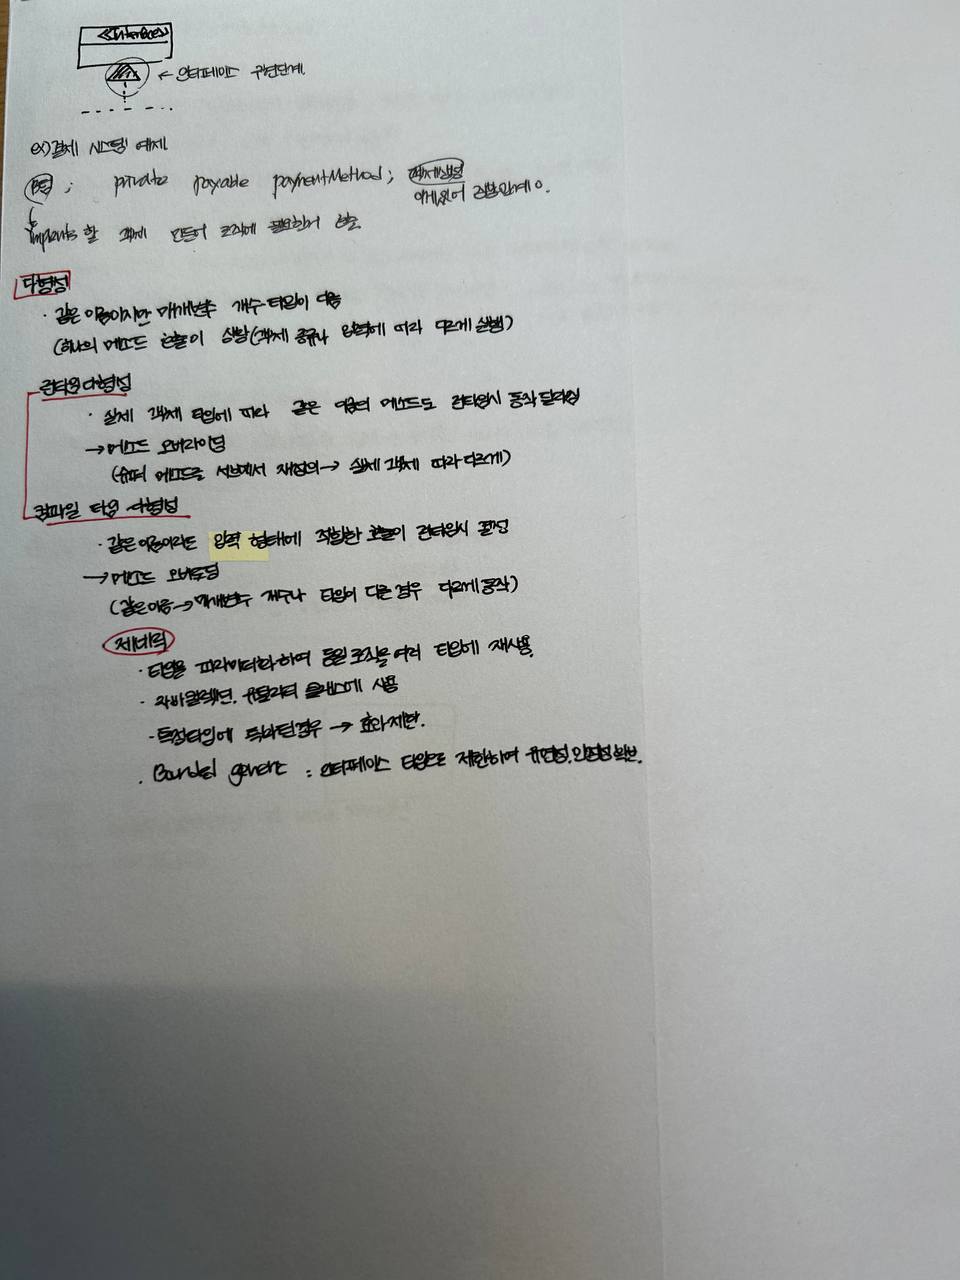 <<Interface>>
← 인터페이스 구현단계.
ex) 결제 시스템 예제
; private payable paymentMethod; 객체생성
이게있어 집합관계 O.
implements 할 객체 만들어 로직에 필요한거 호출.
다형성
· 같은 이름이지만 매개변수 개수·타입이 다름
(하나의 메소드 호출이 상황(객체 종류나 입력에 따라 다르게 실행)
런타임 다형성
· 실제 객체 타입에 따라 같은 이름의 메소드도 런타임시 동작 달라짐
→ 메소드 오버라이딩
(슈퍼 메소드를 서브에서 재정의 → 실제 객체 따라 다르게)
컴파일 타임 다형성
· 같은 이름이라도 입력 형태에 적합한 호출이 런타임시 결정
→ 메소드 오버로딩
(같은이름 → 매개변수 개수나 타입이 다른 경우 다르게 동작)
제네릭
· 타입을 파라미터화하여 동일 로직을 여러 타입에 재사용.
· 자바 컬렉션, 유틸리티 클래스에 사용
· 특정타입에 특화된경우 → 효과 제한.
· generic : 인터페이스 타입으로 제한하여 유연성, 안정성 확보.